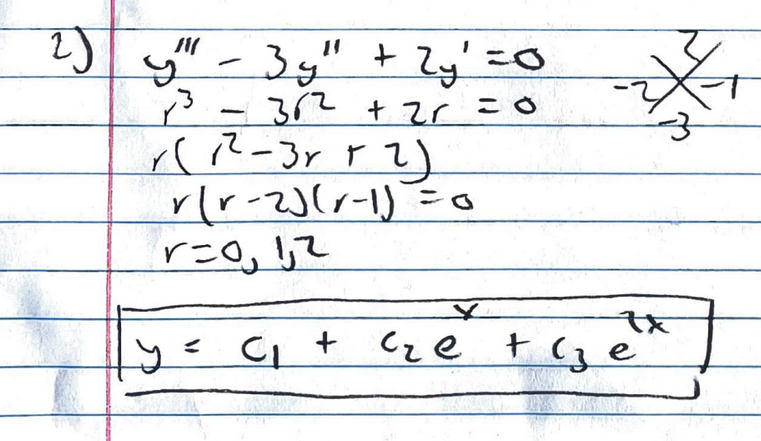 2) y''' - 3y'' + 2y' = 0
r³ - 3r² + 2r = 0
r(r² - 3r + 2)
r(r-2)(r-1) = 0
r = 0, 1, 2
y = c₁ + c₂eˣ + c₃e²ˣ
2
-2 -1
-3